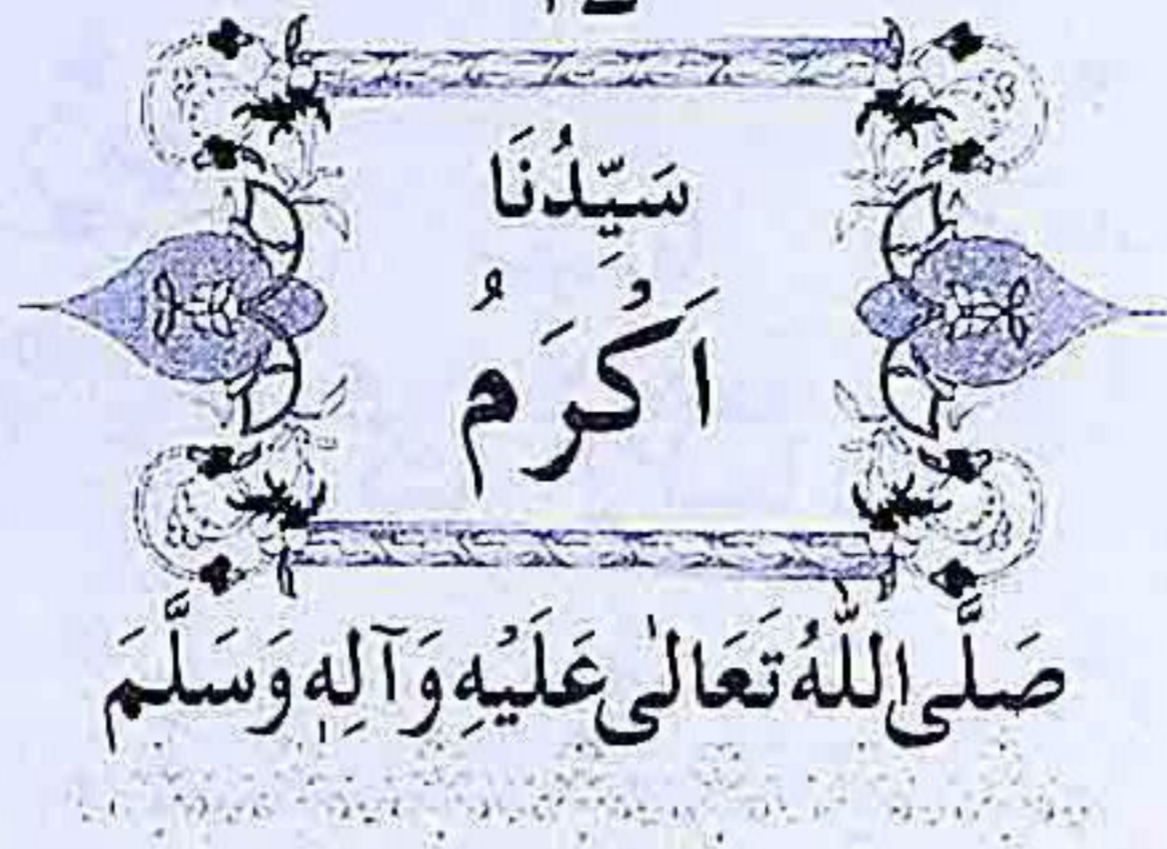 سَيِّدُنَا
اَكْرَمُ
صَلَّى اللّٰهُ تَعَالٰى عَلَيْهِ وَآلِهٖ وَسَلَّمَ